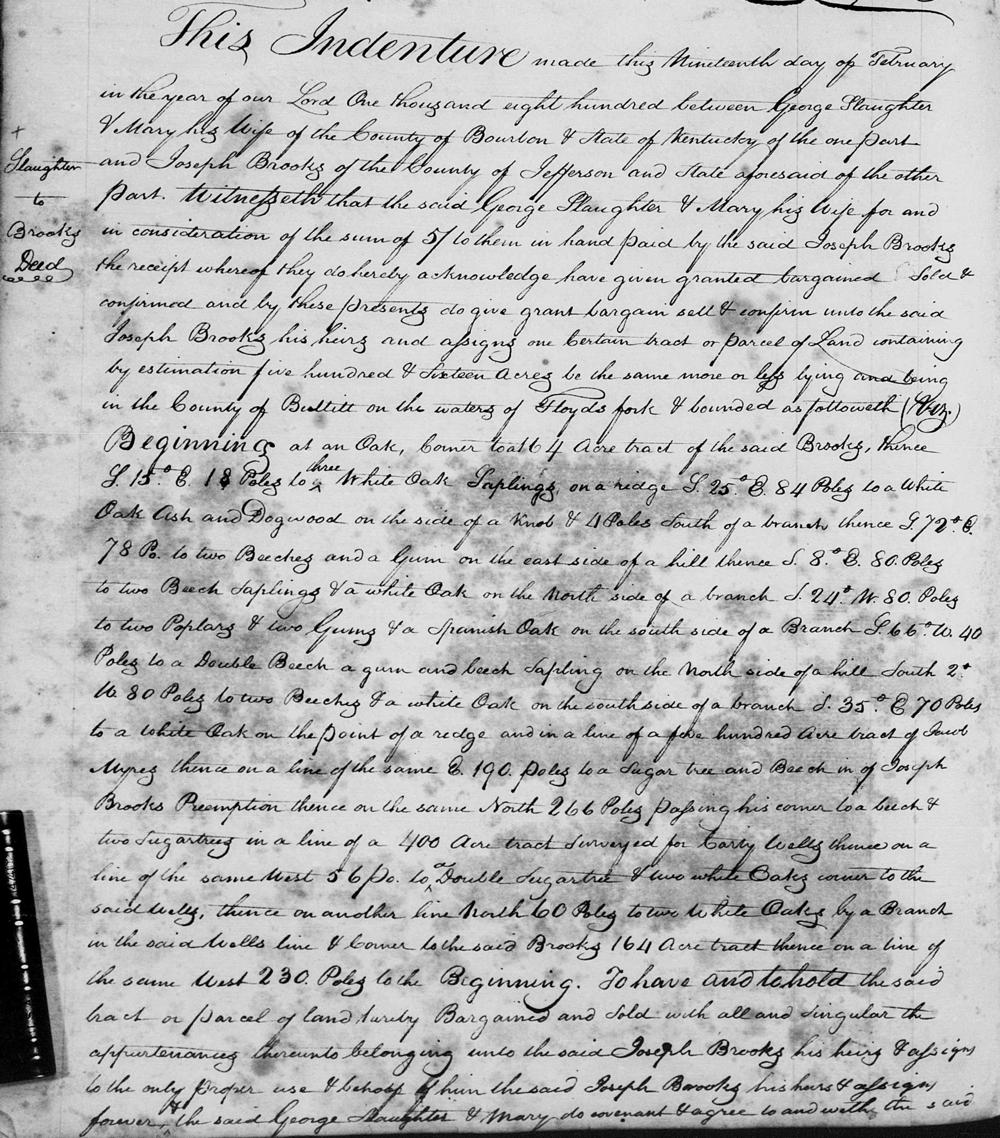 This Indenture made this Nineteenth day of February
in the year of our Lord One thousand eight hundred between George Slaughter
& Mary his Wife of the County of Bourbon & State of Kentucky of the one part
and Joseph Brooks of the County of Jefferson and State aforesaid of the other
part. Witnesseth that the said George Slaughter & Mary his Wife for and
in consideration of the sum of 5/ to them in hand paid by the said Joseph Brooks
the receipt whereof they do hereby acknowledge have given granted bargained Sold &
confirmed and by these presents do give grant bargain sell & confirm unto the said
Joseph Brooks his heirs and assigns one Certain tract or parcel of Land containing
by estimation five hundred & Sixteen Acres be the same more or less lying and being
in the County of Bullitt on the waters of Floyds fork & bounded as followeth (Viz.)
Beginning at an Oak, Corner to a 164 Acre tract of the said Brooks, thence
S. 15° E. 18 Poles to three White Oak Saplings, on a ridge S. 25° E. 84 Poles to a White
Oak Ash and Dogwood on the side of a Knob & 4 Poles South of a branch thence S. 72° E.
78 Po. to two Beeches and a Gum on the east side of a hill thence S. 8° E. 80. Poles
to two Beech Saplings & a white Oak on the North side of a branch S. 24° W. 80. Poles
to two Poplars & two Gums & a Spanish Oak on the south side of a Branch S. 66° W. 40
Poles to a Double Beech a gum and beech Sapling on the North side of a hill South 2°
W. 80 Poles to two Beeches & a white Oak on the south side of a branch S. 35° E 70 Poles
to a White Oak on the point of a redge and in a line of a five hundred Acre tract of Jacob
Myres thence on a line of the same E. 190. poles to a Sugar tree and Beech in of Joseph
Brooks Preemption thence on the same North 266 Poles passing his corner to a beech &
two Sugartrees in a line of a 400 Acre tract Surveyed for Carty Wells thence on a
line of the same West 56 Po. to a Double Sugartree & two white Oaks corner to the
said Wells, thence on another line North 60 Poles to two White Oaks by a Branch
in the said Wells line & Corner to the said Brooks 164 Acre tract thence on a line of
the same West 230. Poles to the Beginning. To have and to hold the said
tract or parcel of land hereby Bargained and Sold with all and Singular the
appurtenances thereunto belonging unto the said Joseph Brooks his heirs & assigns
to the only proper use & behoof of him the said Joseph Brooks his heirs & assigns
forever, & the said George Slaughter & Mary do covenant & agree to and with the said
+
Slaughter
to
Brooks
Deed